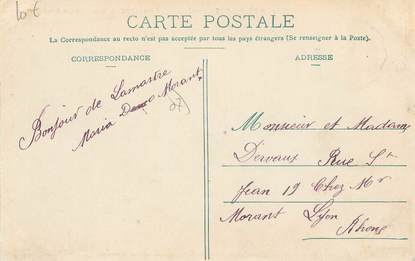 10€
CARTE POSTALE
La Correspondance au recto n'est pas acceptée par tous les pays étrangers (Se renseigner à la Poste).
CORRESPONDANCE
ADRESSE
Bonjour de Lamastre
Maria Morant
07
Monsieur et Madame
Dervaus Rue St
Jean 19 Chez Mr
Morant Lyon
Rhone